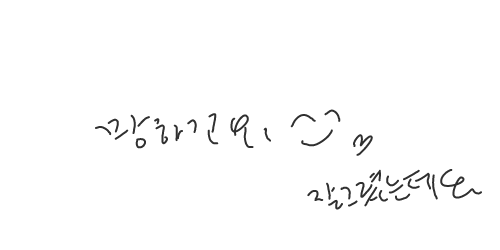 짱하고요,
잘그렸는데요